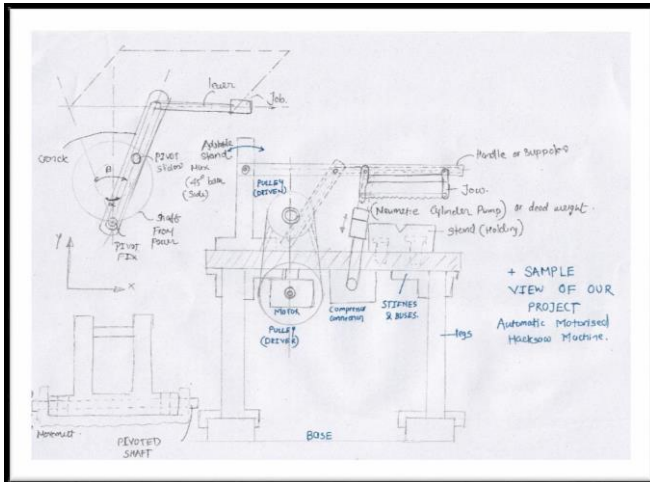 lever
Job.
PIVOT
Sliding
Max
(45° both
(Side)
Shaft
From
power
PIVOT
FIX
B
Y
X
Stand
PULLEY
(DRIVEN)
Handle or Supports
Jow.
(Neumetic Cylinder Pump) or dead weight.
Stand (Holding)
MOTOR
PULLEY
(DRIVER)
Compressor
Connection
STIFNES
& BUSES.
legs
+ SAMPLE
VIEW OF OUR
PROJECT
Automatic Motorised
Hacksaw Machine.
Movement
PIVOTED
SHAFT
BASE